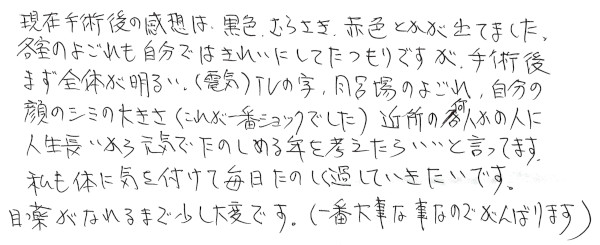 現在手術後の感想は、黒色、むらさき、赤色とかが出てました。
各室のよごれも自分ではきれいにしてたつもりですが、手術後
まず全体が明るい、(電気)TVの字、風呂場のよごれ、自分の
顔のシミの大きさ(これが一番ショックでした) 近所の何人かの人に
人生長いから元気でたのしめる年を考えたらいいと言ってます。
私も体に気を付けて毎日たのしく過していきたいです。
目薬がなれるまで少し大変です。(一番大事な事なのでがんばります)